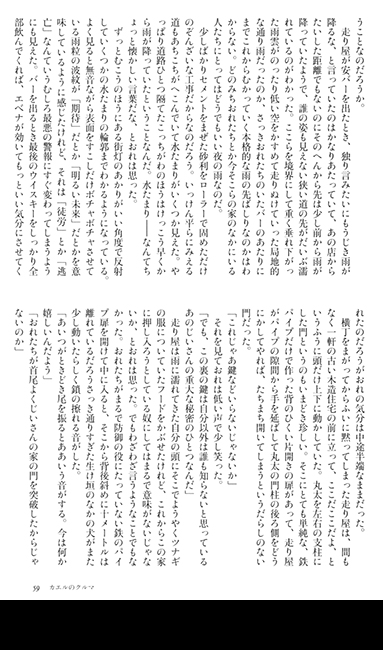 うことなのだろうか。
　走り屋が安バーを出たとき、独り言みたいにもうじき雨が
降るな、と言っていたのはかなりあたっていて、あの店から
たいした距離でもないのにそのへんから先は少し前から雨が
降っていたようで、誰の姿も見えない狭い道の先がだいぶ濡
れているのがわかった。ここらを境界にして重く垂れ下がっ
た雨雲がのったり低い空をかすめて走りぬけていった局地的
な通り雨だったのか、さっきおれたちのいたバーのあたりに
までこれからむかっていく本格的な雨の先ばしりなのかはわ
からない。どのみちおれたちとか今そこらの家のなかにいる
人たちにとってはどうでもいい夜の雨なのだ。
　少しばかりセメントをまぜた砂利をローラーで固めただけ
のぞんざいな工事だからなのだろう。いっけん平らにみえる
道もあちこちがへこんでいて水たまりがいくつか見えた。や
っぱり道路ひとつ隔てたこっちがわのほうはけっこう早くか
ら雨が降っていたということなんだ。水たまり――なんてち
ょっと懐かしい言葉だな、とおれは思った。
　ずっとむこうのほうにある街灯のあかりがいい角度で反射
していくつかの水たまりの輪郭までわかるようになっている。
よく見ると無音ながら表面をすこしだけポチャポチャさせて
いる雨粒の波紋が「期待」だとか「明るい未来」だとかを意
味しているように感じたけれど、それは「徒労」とか「逃
亡」なんていうむしろ最悪の警報にすぐ変わってしまうよう
にも見えた。バーを出るとき最後のウイスキーをしっかり全
部飲んでくれば、エベナが効いてもっといい気分にさせてく
れたのだろうがおれの気分は中途半端なままだった。
　横丁をまがってからふいに黙ってしまった走り屋は、間も
なく一軒の古い木造住宅の前に立って、ここだここだよ、と
いうふうに頭だけ上下に動かしていた。丸太を左右の支柱に
した門というのもいまどき珍しい。そこにとても単純な、鉄
パイプだけで作った背のひくい片開きの扉があって、走り屋
がパイプの隙間から手を延ばして丸太の門柱の後ろ側をどう
にかしてやれば、たちまち開いてしまうというだらしのない
門だった。
「これじゃあ鍵などいらないじゃないか」
　それを見ておれは低い声で少し笑った。
「でも、この裏の鍵は自分以外は誰も知らないと思っている
あのじいさんの重大な秘密のひとつなんだ」
　走り屋は雨に濡れてきた自分の頭にそこでようやくツナギ
の服についていたフードをかぶせたけれど、これからこの家
に押し入ろうとしている奴にしてはまるで意味がないじゃな
いか、とおれは思った。でもわざわざ言うようなことでもな
かった。おれたちがまるで防御の役にたっていない鉄のパイ
プ扉を開けて中に入ると、そこから背後斜めに十メートルは
離れているだろうさっき通りすぎた生け垣のなかの犬がまた
少し動いたらしく鎖の擦れる音がした。
「あいつがときどき尾を振るとああいう音がする。今は何か
嬉しいんだよう」
「おれたちが首尾よくじいさんの家の門を突破したからじゃ
ないのか」
59　カエルのクルマ